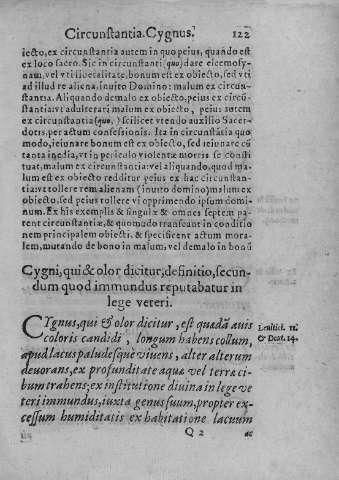 Circunstantia. Cygnus. 122
iecto, ex circunstantia autem in quo peius, quando est
ex loco sacro. Sic in circunstanti (quo) dare eleemosy-
nam, vel vti liberalitate, bonum est ex obiecto, sed vti
ad illud re aliena, inuito Domino: malum ex circun-
stantia. Aliquando demalo ex obiecto, peius ex circũ-
stantia: vt adulterari malum ex obiecto, peius autem
ex circunstantia (quo,) scilicet vtendo auxilio Sacer-
dotis, per actum confessionis. Ita in circunstãtia quo-
modo, ieiunare bonum est ex obiecto, sed ieiunare cũ
tanta inedia, vt in periculo violentæ mortis se consti
tuat, malum ex circunstantia: vel aliquando, quod ma
lum est ex obiecto redditur peius ex hac circunstan-
tia: vt tollere rem alienam (inuito domino) malum ex
obiecto, sed peius tollere vi opprimendo ipsum domi-
num. Ex his exemplis & singulæ & omnes septem pa-
tent circunstantiæ, & quomodo transeant in conditio
nem principalem obiecti, & specificent actum mora-
lem, mutando de bono in malum, vel demalo in bonũ
Cygni, qui & olor dicitur, definitio, secun-
dum quod immundus reputabatur in
lege veteri.
CYgnus, qui & olor dicitur, est quædã auis
coloris candidi, longum habens collum,
apud lacus paludesque viuens, alter alterum
deuorans, ex profunditate aquæ vel terræ ci-
bum trahens; ex institutione diuina in lege ve
teri immundus, iuxta genus suum, propter ex-
cessum humiditatis ex habitatione lacuum
Leuitici. 11.
& Deut. 14.
Q 2 ac